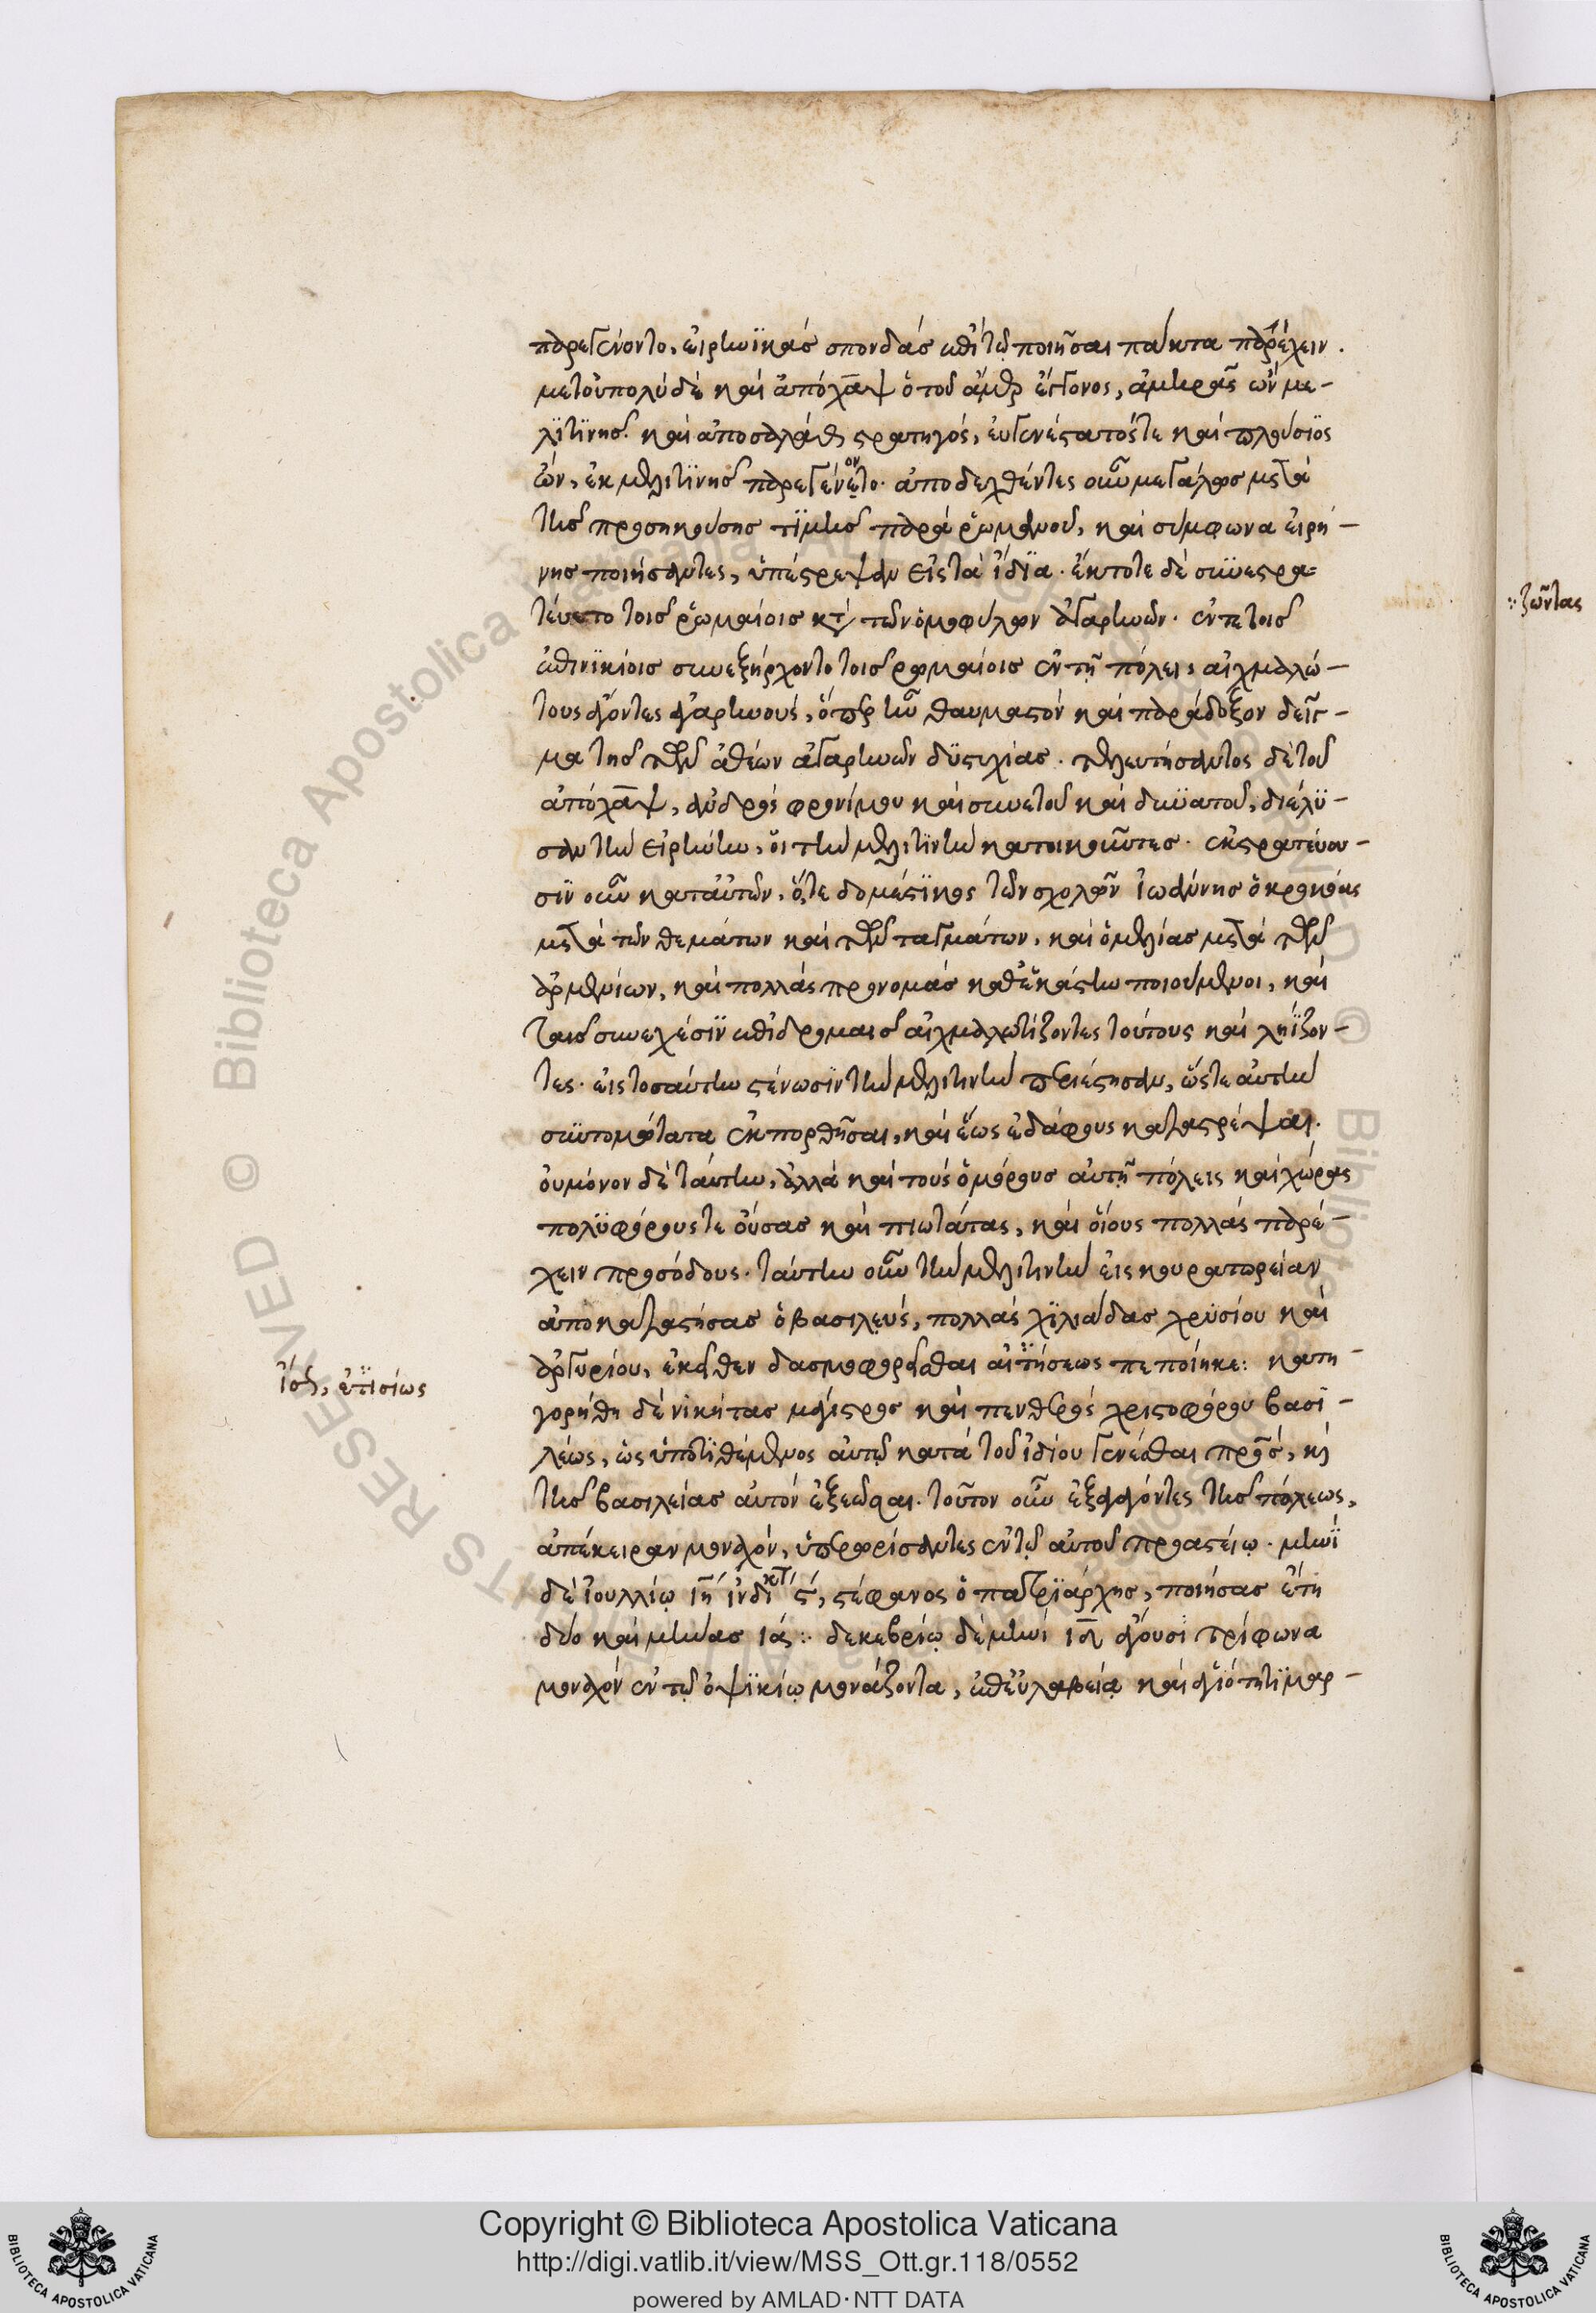 παρεγένοντο, εἰρηνϊκὰς σπονδὰς ἐπὶ τῷ ποιῆσαι πάκτα παρέχειν.
μετοὐπολὺ δὲ καὶ ἀπόχαψ ὁ τοῦ ἄμερ ἔγγονος, ἀμηρᾶς ὢν με-
λϊτϊνῆς. καὶ ἀποσαλὰθ, στρατηγὸς, εὐγενέστατός τε καὶ πλούσϊος
ὢν, ἐκ μελιτϊνῆς παρεγένοντο. ἀποδεχθέντες οὖν μεγάλως μετὰ
τῆς προσηκούσης τϊμῆς παρὰ ῥωμανοῦ, καὶ σύμφωνα εἰρή-
νης ποιήσαντες, ὑπέστρεψαν εἰς τὰ ἴδϊα. ἔκτοτε δὲ συνεστρα-
τεύετο τοῖς ῥωμαίοις κατὰ τῶν ὁμοφύλων ἀγαρηνῶν. ἔν τε τοῖς
ἐπινϊκίοις συνεξήρχοντο τοῖς ρωμαίοις ἐν τῇ πόλει, αἰχμαλώ-
τους ἄγοντες ἀγαρηνοὺς, ὅπερ ἦν θαυμαστὸν καὶ παράδοξον δεῖγ-
μα τῆς τῶν ἀθέων ἀγαρηνῶν δϋστυχίας. τελευτήσαντος δὲ τοῦ
ἀπόχαψ, ἀνδρὸς φρονίμου καὶ συνετοῦ καὶ δυνατοῦ, διέλϋ-
σαν τὴν εἰρήνην, οἱ τὴν μελιτϊνὴν κατοικοῦντες. ἐκστρατεύου-
σϊν οὖν κατ αὐτῶν, ὅ,τε δομέστϊκος τῶν σχολῶν ἰωάννης ὁ κροκόας
μετὰ τῶν θεμάτων καὶ τῶν ταγμάτων, καὶ ὁ μελίας μετὰ τῶν
ἀρμενίων, καὶ πολλὰς προνομὰς καθἑκάστην ποιούμενοι, καὶ
ταῖς συνεχέσϊν ἐπιδρομαῖς αἰχμαλωτίζοντες τούτους καὶ ληΐζον-
τες. εἰς τοσαύτην στένωσϊν τὴν μελιτινὴν περιέστησαν, ὥστε αὐτὴν
συντομώτατα ἐκπορθῆσαι, καὶ ἕως ἐδάφους καταστρέψαι.
οὐ μόνον δὲ ταύτην, ἀλλὰ καὶ τοὺς ὁμόρους αὐτῇ πόλεις καὶ χώρας
πολϋφόρους τε οὔσας καὶ πιωτάτας, καὶ οἵους πολλὰς παρέ-
χειν προσόδους. ταύτην οὖν τὴν μελιτινὴν εἰς κουρατωρείαν
ἀποκαταστήσας ὁ βασιλεὺς, πολλὰς χϊλιάδας χρϋσίου καὶ
ἀργυρίου, ἐκεῖθεν δασμοφορεῖσθαι αἰτήσεως πεποίηκε: κατη-
γορήθη δὲ νικήτας μάγιστρος καὶ πενθερὸς χριστοφόρου βασι-
λέως, ὡς ὑποτϊθέμενος αὐτῷ κατὰ τοῦ ἰδίου γενέσθαι πατρὸς, καὶ
τῆς βασιλείας αὐτὸν ἐξεῶσαι. τοῦτον οὖν ἐξαγαγόντες τῆς πόλεως,
ἀπέκειραν μοναχόν, ὑπερορίσαντες ἐν τῷ αὐτοῦ προαστείῳ. μηνῒ
δὲ ἰουλλίῳ ιη ἰνδικτ ς, στέφανος ὁ πατρϊάρχης, ποιήσας ἔτη
δύο καὶ μῆνας ιά: δεκεβρίῳ δὲ μηνὶ ιδ ἄγουσι τρίφωνα
μοναχὸν ἐν τῷ ὀψϊκίῳ μονάζοντα, ἐπεὐλαβείᾳ καὶ ἁγιότητϊ μαρ-
ἴσως, ἐτησίως
ζῶντας